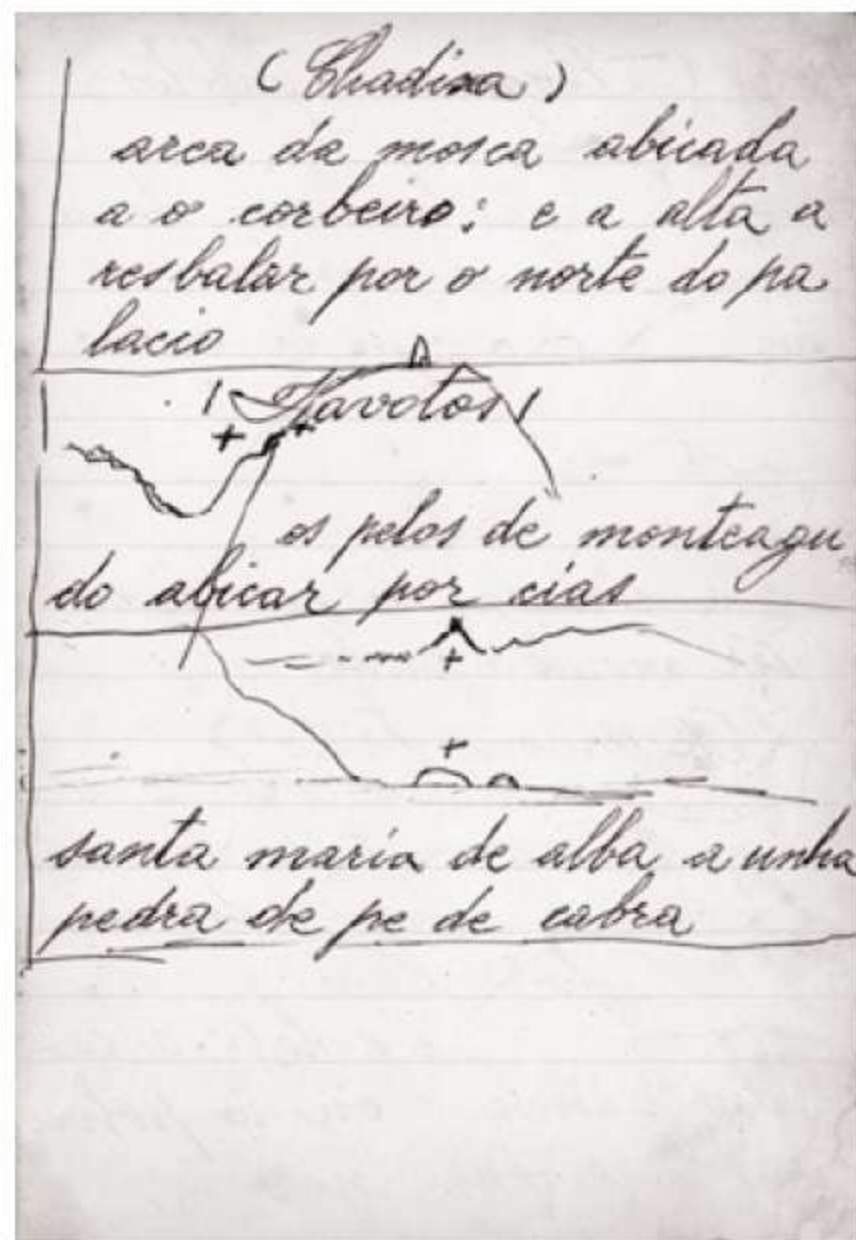 (Chadixa)
arca da mosca abicada
a o corbeiro: e a alta a
resbalar por o norte do pa
lacio
os pelos de monteagu
do abicar por cías
santa maría de alba a unha
pedra de pe de cabra